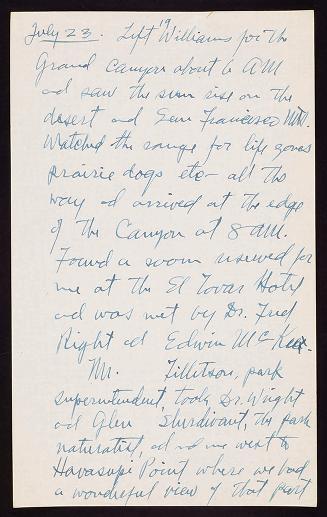 July 23. Left Williams for the
19
Grand Canyon about 6 AM
and saw the sun rise on the
desert and San Francisco Mtn.
Watched the range for life
prairie dogs etc - all the
way and arrived at the edge
of the Canyon at 8 AM.
Found a room reserved for
me at the El Tovar Hotel
and was met by Dr. Fred
Right and Edwin McKee.
Mr. Tillotson, park
superintendent, took Dr. Wright
and Glen Sturdivant, the park
naturalist, and me west to
Havasupi Point where we had
a wonderful view of that part